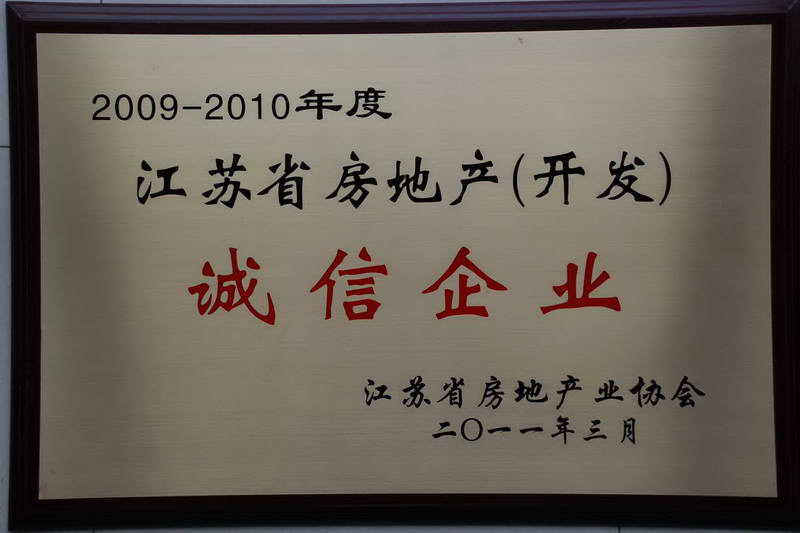 2009-2010年度
江苏省房地产(开发)
诚信企业
江苏省房地产业协会
二〇一一年三月